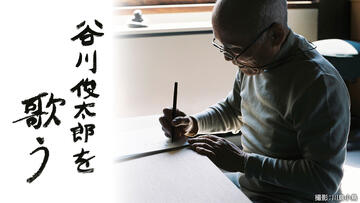 谷川俊太郎を
歌う
撮影:川島小鳥